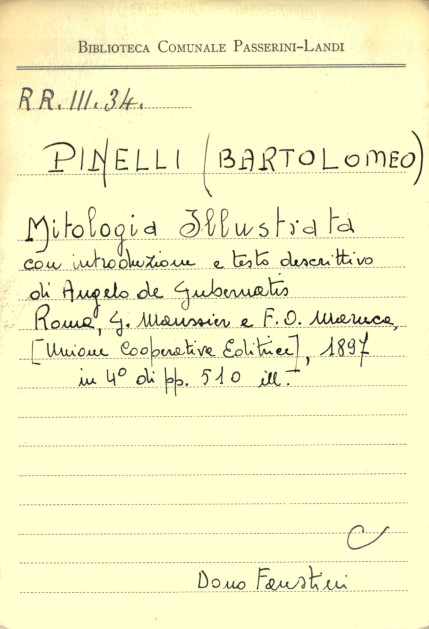 BIBLIOTECA COMUNALE PASSERINI-LANDI
RR. III. 34.
PINELLI (BARTOLOMEO)
Mitologia Illustrata
con introduzione e testo descrittivo
di Angelo de Gubernatis
Roma, G. e F. O.
[Unione Cooperativa Editrice], 1897
in 4° di pp. 510 ill.-
C
Dono Faustini